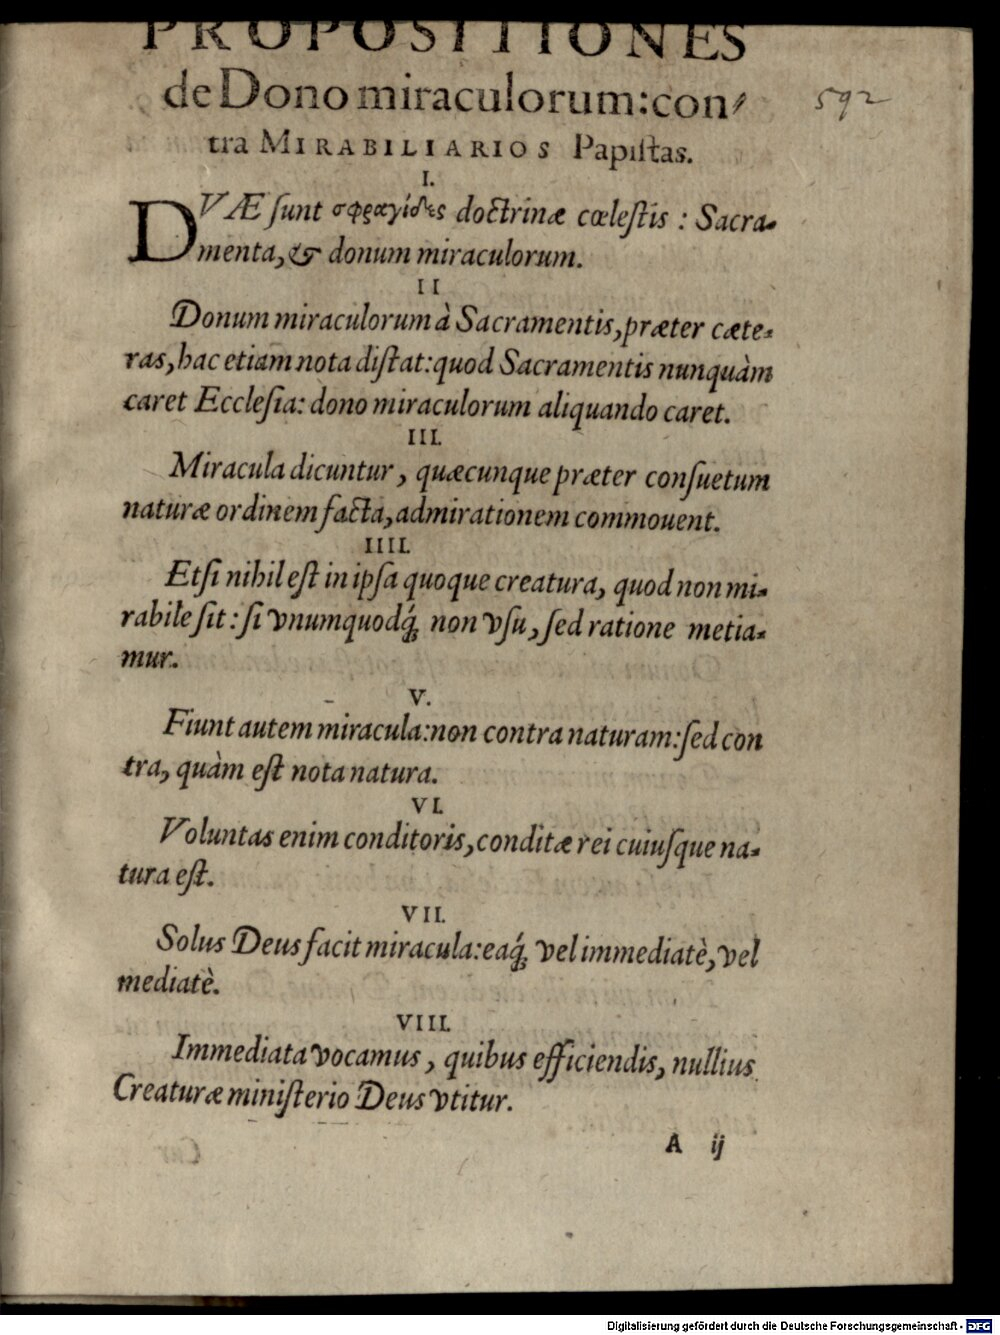 PROPOSITIONES
de Dono miraculorum: con-
tra MIRABILIARIOS Papiſtas.
592
I.
DVÆ ſunt σφραγίδες doctrinæ cœleſtis : Sacra-
menta, & donum miraculorum.
II
Donum miraculorum à Sacramentis, præter cæte-
ras, hac etiam nota diſtat: quod Sacramentis nunquàm
caret Eccleſia: dono miraculorum aliquando caret.
III.
Miracula dicuntur, quæcunque præter conſuetum
naturæ ordinem facta, admirationem commouent.
IIII.
Etſi nihil eſt in ipſa quoque creatura, quod non mi-
rabile ſit: ſi vnumquodq́; non vſu, ſed ratione metia-
mur.
V.
Fiunt autem miracula: non contra naturam: ſed con
tra, quàm eſt nota natura.
VI.
Voluntas enim conditoris, conditæ rei cuiuſque na-
tura eſt.
VII.
Solus Deus facit miracula: eaq́; vel immediatè, vel
mediatè.
VIII.
Immediata vocamus, quibus efficiendis, nullius
Creaturæ miniſterio Deus vtitur.
A ij
Digitalisierung gefördert durch die Deutsche Forschungsgemeinschaft - DFG